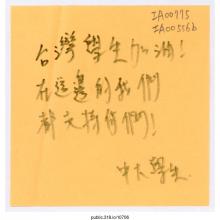 IA00775
IA00556b
台灣學生加油!
在這邊的我們
都支持你們!
中大學生.
public.318.io/10706